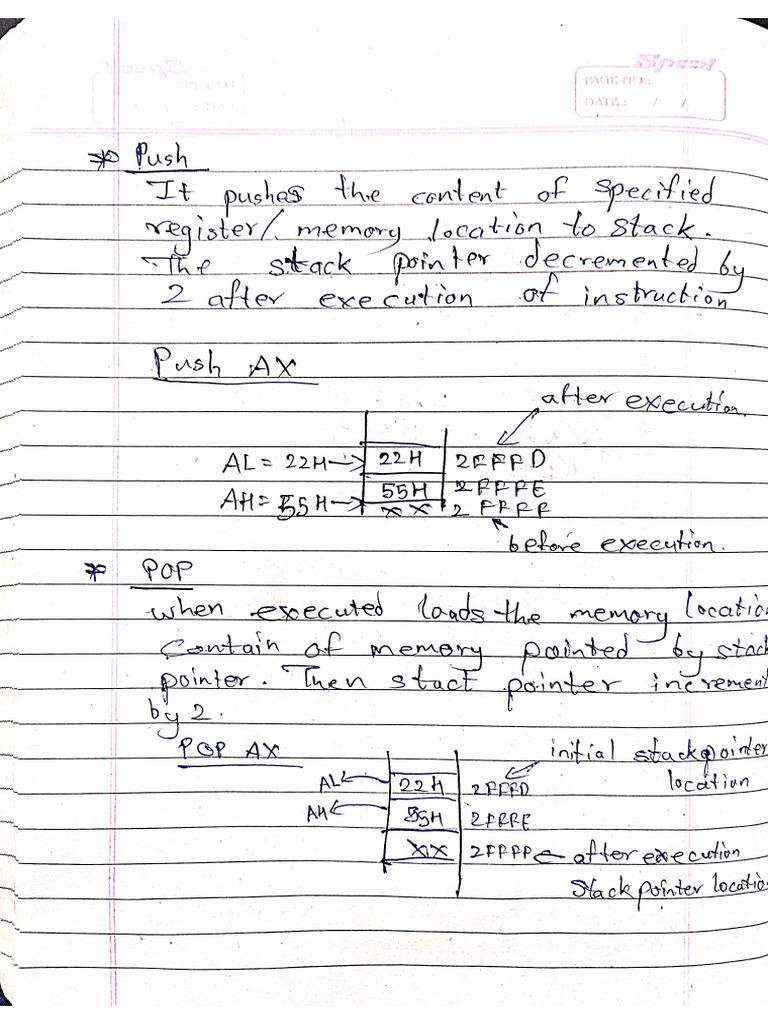 Speed
PAGE NO.:
DATE: / /
* Push
It pushes the content of specified
register/ memory location to stack.
The stack pointer decremented by
2 after execution of instruction
Push AX
after execution.
AL = 22H → 22H 2FFFD
AH = 55H → 55H 2FFFE
XX 2FFFF
before execution.
* POP
when executed loads the memory locatio
Contain of memory pointed by stac
pointer. Then stact pointer increment
by 2.
POP AX
initial stackpointer
location
AL ← 22H 2FFFD
AH ← 55H 2FFFE
XX 2FFFF ← after execution
Stack pointer locatio